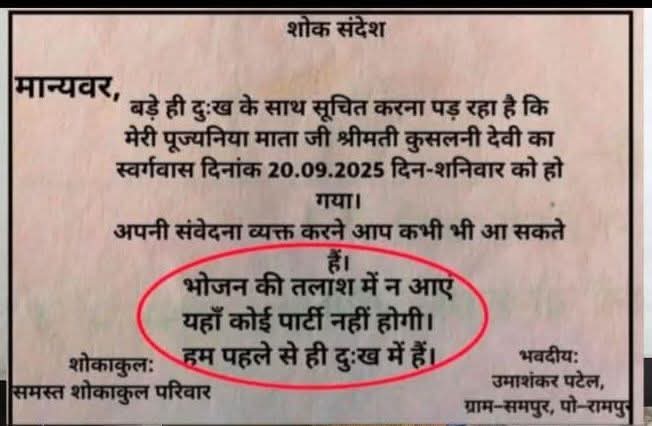 शोक संदेश
मान्यवर,
बड़े ही दुःख के साथ सूचित करना पड़ रहा है कि
मेरी पूज्यनिया माता जी श्रीमती कुसलनी देवी का
स्वर्गवास दिनांक 20.09.2025 दिन-शनिवार को हो
गया।
अपनी संवेदना व्यक्त करने आप कभी भी आ सकते
हैं।
भोजन की तलाश में न आएं
यहाँ कोई पार्टी नहीं होगी।
हम पहले से ही दुःख में हैं।
शोकाकुल:
समस्त शोकाकुल परिवार
भवदीय:
उमाशंकर पटेल,
ग्राम–समपुर, पो–रामपुर